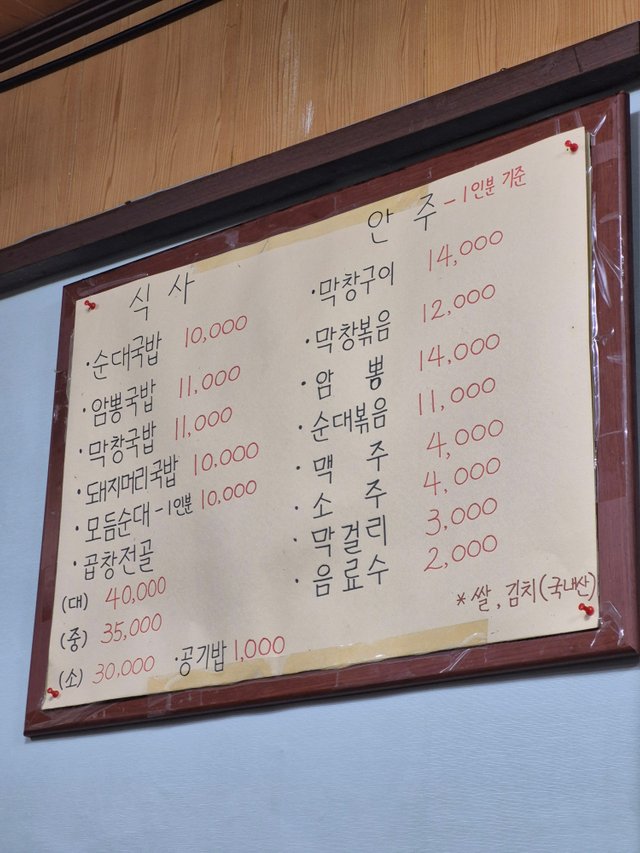 식 사
·순대국밥 10,000
·암뽕국밥 11,000
·막창국밥 11,000
·돼지머리국밥 10,000
·모듬순대-1인분 10,000
·곱창전골
(대) 40,000
(중) 35,000
(소) 30,000 ·공기밥 1,000
안 주 -1인분 기준
·막창구이 14,000
·막창볶음 12,000
·암 뽕 14,000
·순대볶음 11,000
·맥 주 4,000
·소 주 4,000
·막걸리 3,000
·음료수 2,000
*쌀, 김치(국내산)